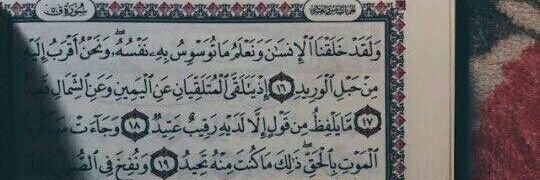 سورة ق
وَلَقَدْ خَلَقْنَا الْإِنسَـٰنَ وَنَعْلَمُ مَا تُوَسْوِسُ بِهِۦ نَفْسُهُۥ ۖ وَنَحْنُ أَقْرَبُ إِلَيْهِ
مِنْ حَبْلِ الْوَرِيدِ ١٦ إِذْ يَتَلَقَّى الْمُتَلَقِّيَانِ عَنِ الْيَمِينِ وَعَنِ الشِّمَالِ
١٧ مَّا يَلْفِظُ مِن قَوْلٍ إِلَّا لَدَيْهِ رَقِيبٌ عَتِيدٌ ١٨ وَجَآءَتْ
الْمَوْتِ بِالْحَقِّ ۖ ذَٰلِكَ مَا كُنتَ مِنْهُ تَحِيدُ ١٩ وَنُفِخَ فِي